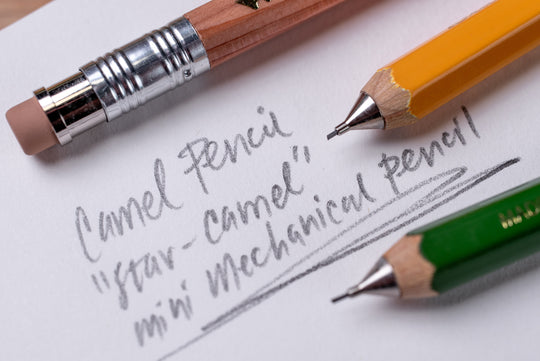 Camel Pencil
"star-camel"
mini mechanical pencil